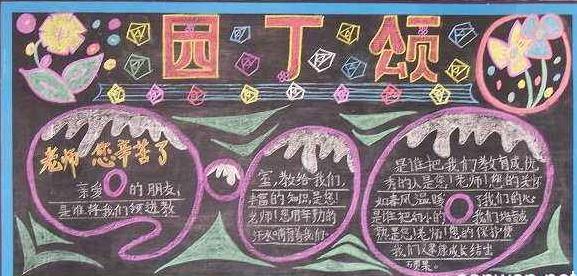 园丁颂
老师 您辛苦了
亲爱的朋友,
是谁将我们领进教
室,教给我们,
丰富的知识,是您!
老师!您用辛勤的
汗水哺育着我们
是谁把我们教育成优
秀的人是您!老师!您的关怀
如春风,温暖了我们的心
是谁把幼小的我们培育成
熟是您!老师!您的保护使
我们健康成长结出
硕果。